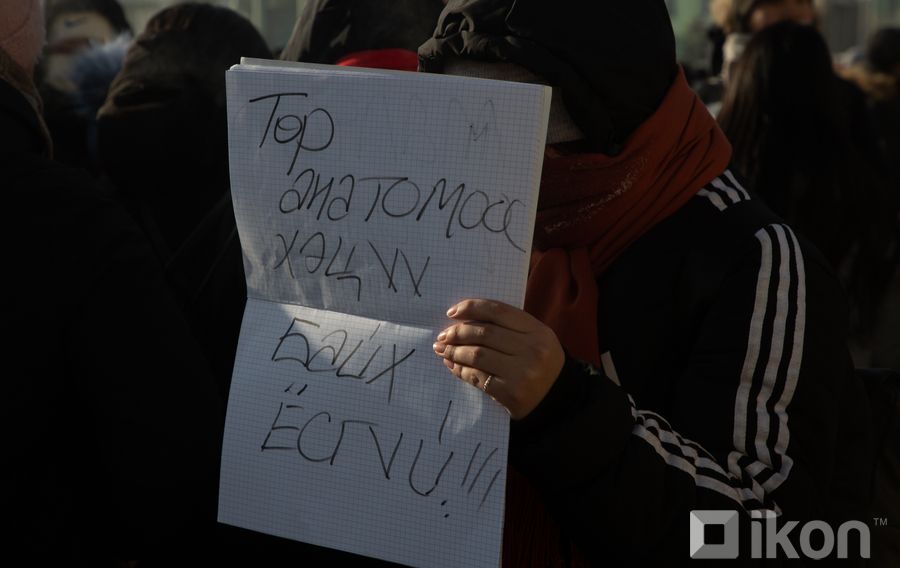 Төр
анатомоос
хэцүү
Байх
Ёсгүй!!!
ikon™